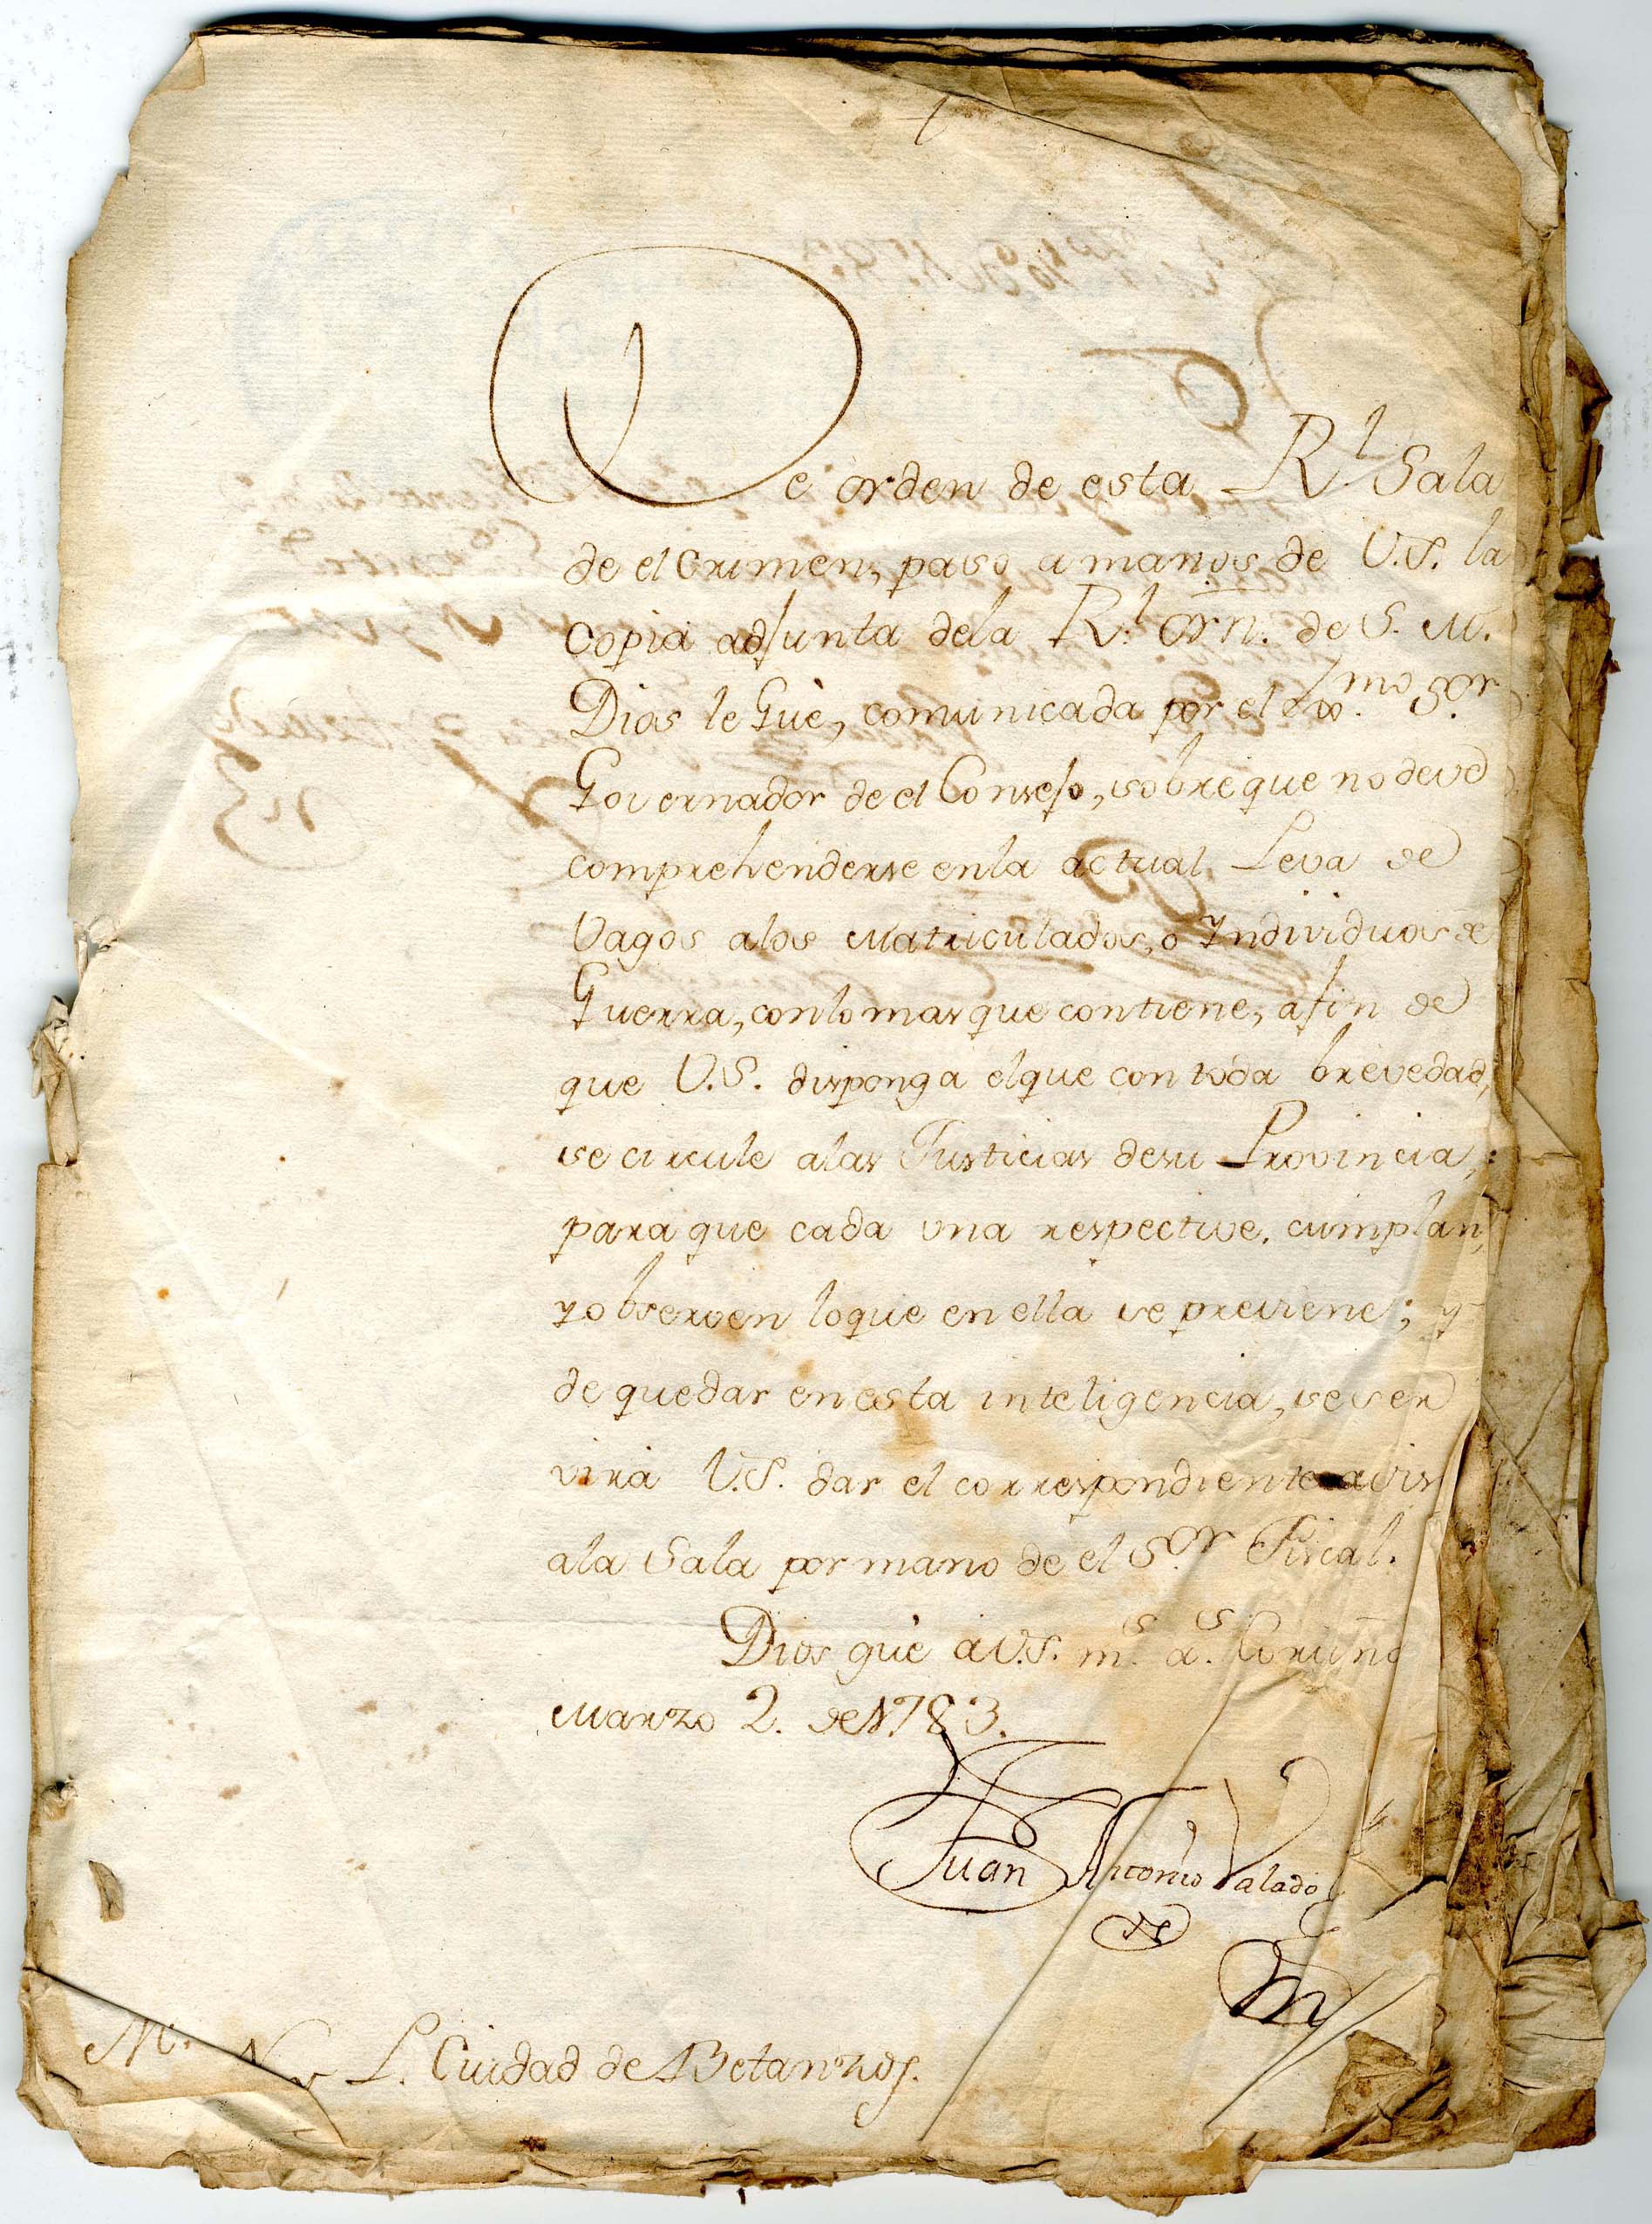 De orden de esta Rl. Sala
de el Crimen, paso a manos de V.S. la
Copia adjunta dela Rl. Orn. de S. M.
Dios le Gue, comunicada por el Exmo. Sor.
Governador de el Consejo, sobre que no deve
comprehenderse enla actual Leva de
Vagos alos Matriculados, o Yndividuos de
Guerra, conlo mas que contiene, afin de
que V.S. disponga elque con toda brevedad,
se circule alas Justicias desu Provincia,
para que cada una respective. cumplan,
y observen loque en ella se previene; y
de quedar en esta inteligencia, se ser
virá V.S. dar el correspondiente avis
ala Sala por mano de el Sor. Fiscal.
Dios gue a V.S. ms. as. Coruña
Marzo 2. de 1783.
Juan Antonio Valado
M. N. y L. Ciudad de Betanzos.